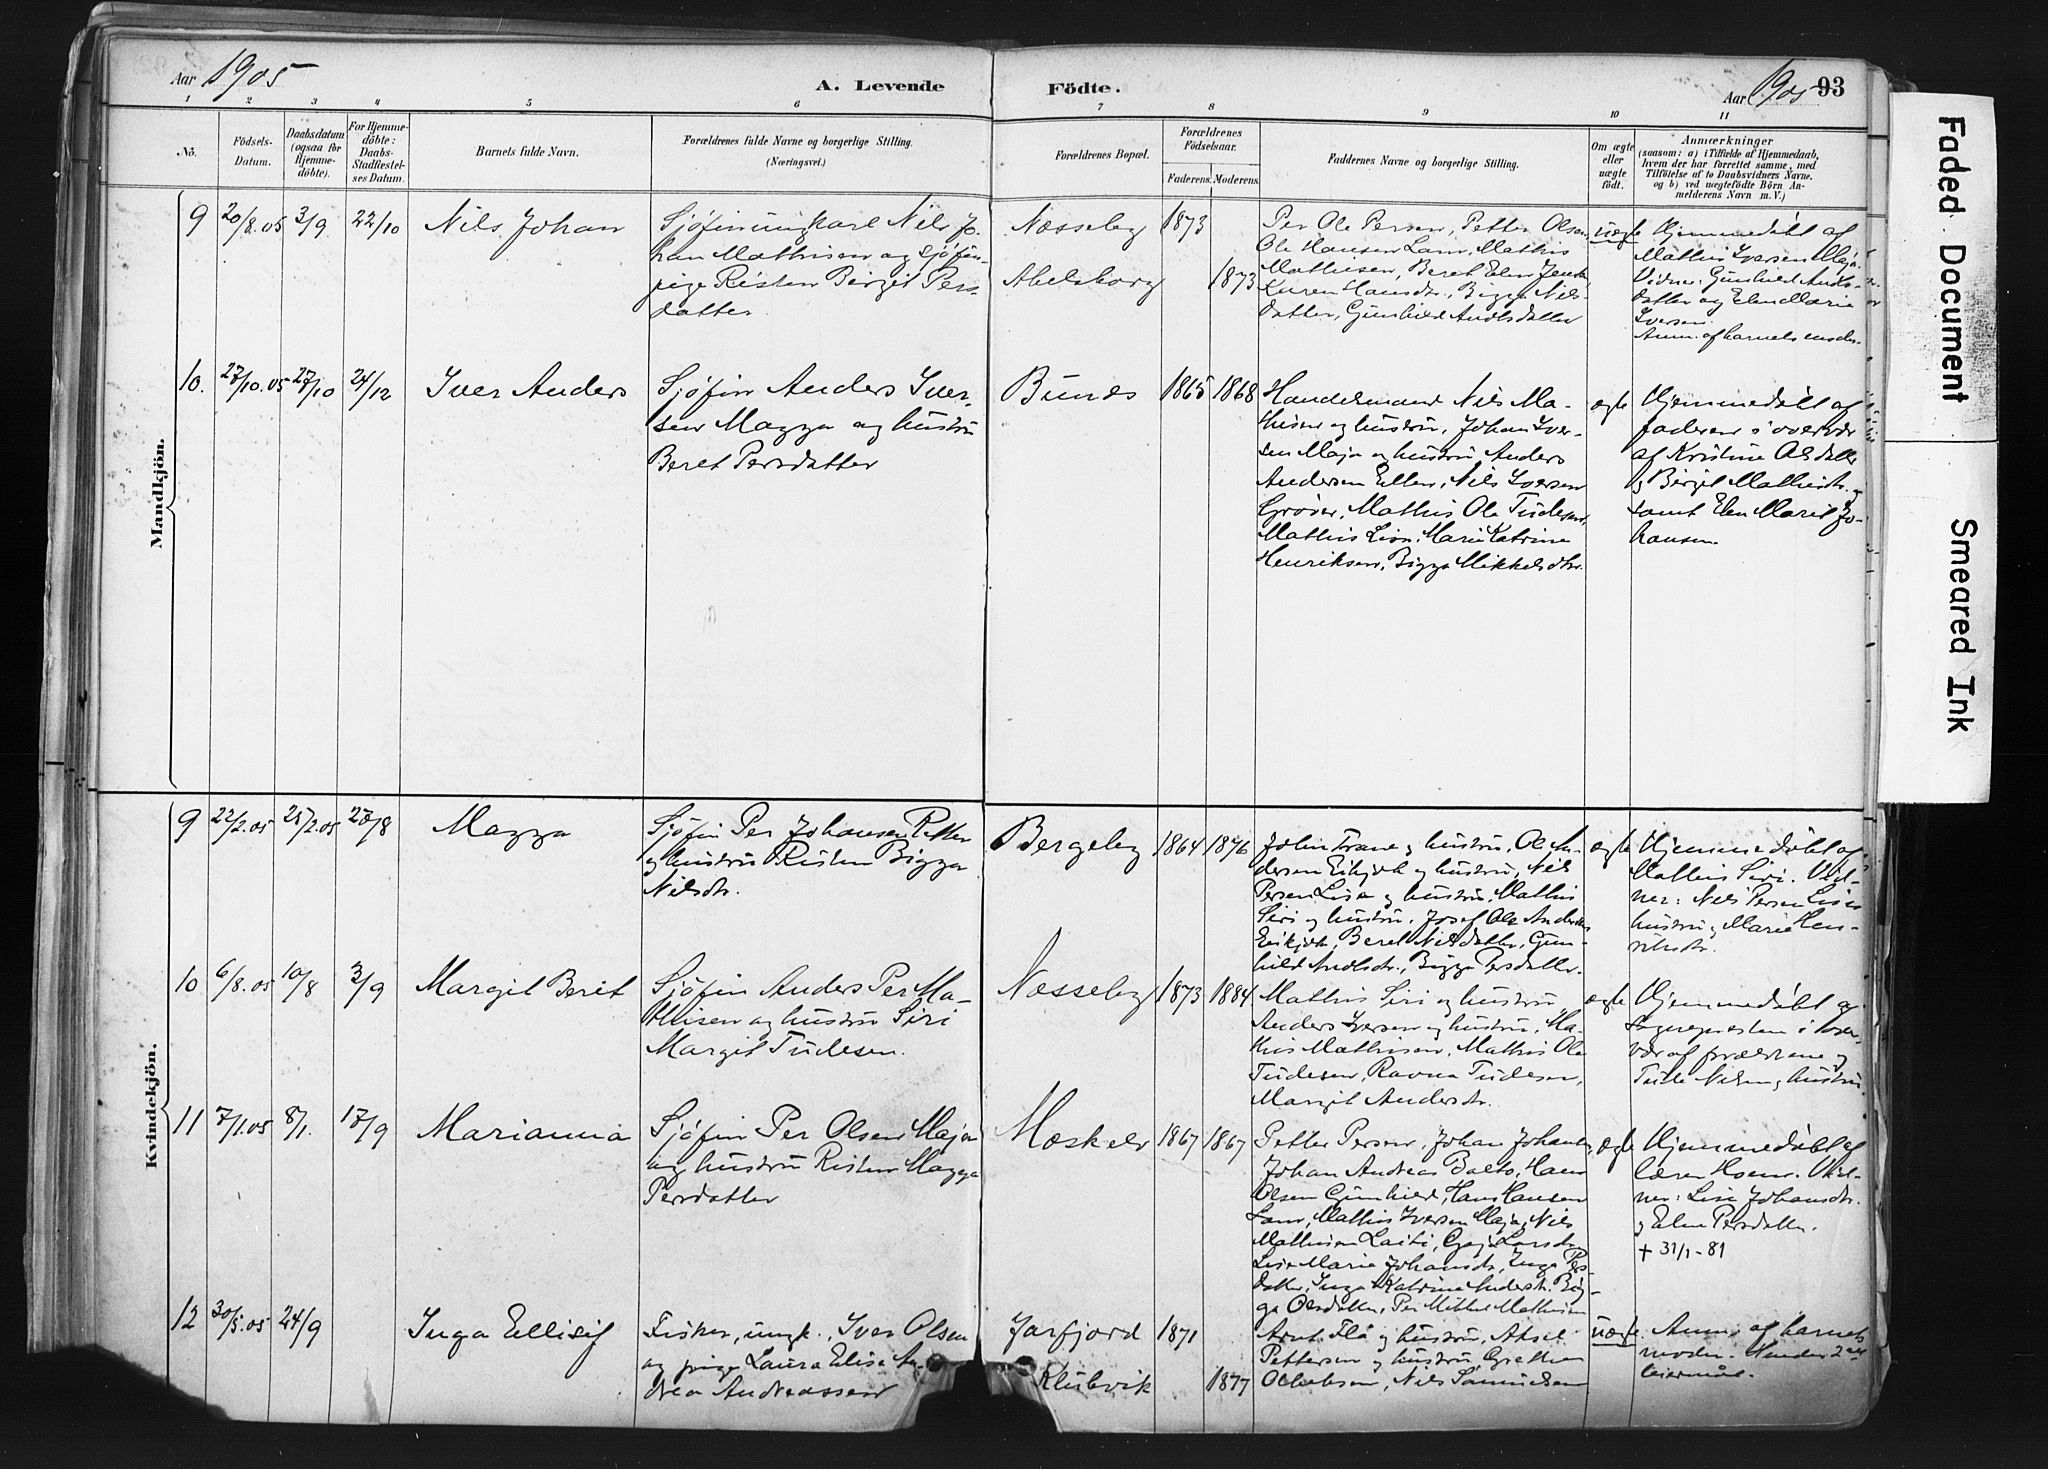 Aar 1905
A. Levende
Födte.
Aar 1905
93
1 2 3 4 5 6 7 8 9 10 11
Nö.
Födsels-Datum.
Daabsdatum (ogsaa for Hjemmedöbte).
For Hjemmedöbte: Daabs-Stadfæstelses Datum.
Barnets fulde Navn.
Forældrenes fulde Navne og borgerlige Stilling.
(Næringsvei.)
Forældrenes Bopæl.
Forældrenes Födselsaar.
Faderens. Moderens.
Faddernes Navne og borgerlige Stilling.
Om ægte eller uægte født.
Anmærkninger
(saasom: a) i Tilfælde af Hjemmedaab,
hvem der har forrettet samme, med
Tilföielse af to Daabsvidners Navne.
og b) ved uægtefödte Börn Anmelderens Navn m. V.)
Mandkjön.
9 20/8.05 3/9 22/10 Nils Johan
Sjöfin ungkarl Nils Jo-
han Mathisen og sjöfin-
pige Risten Birgit Pers-
datter
Næsseby 1873
Abelsborg 1873
Per Ole Persen, Petter Olsen
Ole Hansen Lam, Mathis
Mathisen, Beret Elen
Karen Hansdr., Bigga Nils-
datter, Gunhild Andsdatter
uægte
Hjemmedöbt af
Mathis Iversen Maja.
Vidner: Gunhild Ands-
datter og Elen Marie
Iversen.
Anm. af barnets moder.
10. 27/10.05 27/10 24/12 Iver Anders
Sjöfin Anders Iver-
sen Magga og hustru
Beret Persdatter
Bunes 1865 1868
Handelsmand Nils Ma-
thisen og hustru, Johan Iver-
sen Maja og hustru, Anders
Andersen Ellen, Nils Iversen
Mathis Ole Tudesen,
Mathis Marie Katrine
Henriksen, Bigga Mikkelsdtr.
ægte
Hjemmedöbt af
faderen i overvær
af Kristine Olsdatter
og Birgit Mathisdtr.
samt Elen Marit Jo-
hansen.
Kvindekjön.
9 22/2.05 25/2.05 27/8 Magga
Sjöfin Per Johansen
og hustru Risten Bigga
Nilsdtr.
Bergeby 1864 1876
John Trane og hustru, Ole An-
dersen og hustru, Nils
Persen Lisa og hustru, Mathis
Siri og hustru, Josef Ole Andersen
Beret Nilsdatter, Gun-
hild Andsdtr., Bigga Persdatter.
ægte
Hjemmedöbt af
Mathis Siri. Vid-
ner: Nils Persen Lisas
hustru og Marie Hen-
riksdtr.
10 6/8.05 10/8 3/9 Margit Beret
Sjöfin Anders Per Ma-
thisen og hustru Siri
Margit Tudesen.
Næsseby 1873 1884
Mathis Siri og hustru
Anders Iversen og hustru, Ma-
this Mathisen, Mathis Ole
Tudesen, Ravna Tudesen,
Margit Andersdtr.
ægte
Hjemmedöbt af
Sognepresten i over-
vær af forældrene og
Tude Nilsen og hustru.
11 7/1.05 8/1. 17/9 Marianna
Sjöfin Per Olsen Maja
og hustru Risten Magga
Persdatter
Mæskelv 1867 1867
Petter Persen, Johan Johansen,
Johan Andreas Balto, Hans
Olsen Gunhild, Hans Hansen
Lam, Mathis Iversen Maja, Nils
Mathisen Laiti,
Lise Marie Johansdtr, Inga Pers-
datter, Inga Katrine Andersdtr. Big-
ga Olsdatter, Per Mikkel Mathisen
ægte
Hjemmedöbt af
lærer Hoem. Vid-
ner: Lise Johansdtr.
og Elen Persdatter.
+ 31/1-81
12 30/5.05 24/9 Inga Ellisif
Fisker, ungk., Iver Olsen
og pige Laura Elise An-
drea Andreassen
Jarfjord 1871
Klubvik 1877
Arnt Flå og hustru, Aksel
Pettersen og hustru, Grethe
Nils Samuelsen
uægte
Anm. af barnets
moder. Hendes 2det
leiermål.
Faded Document
Smeared Ink